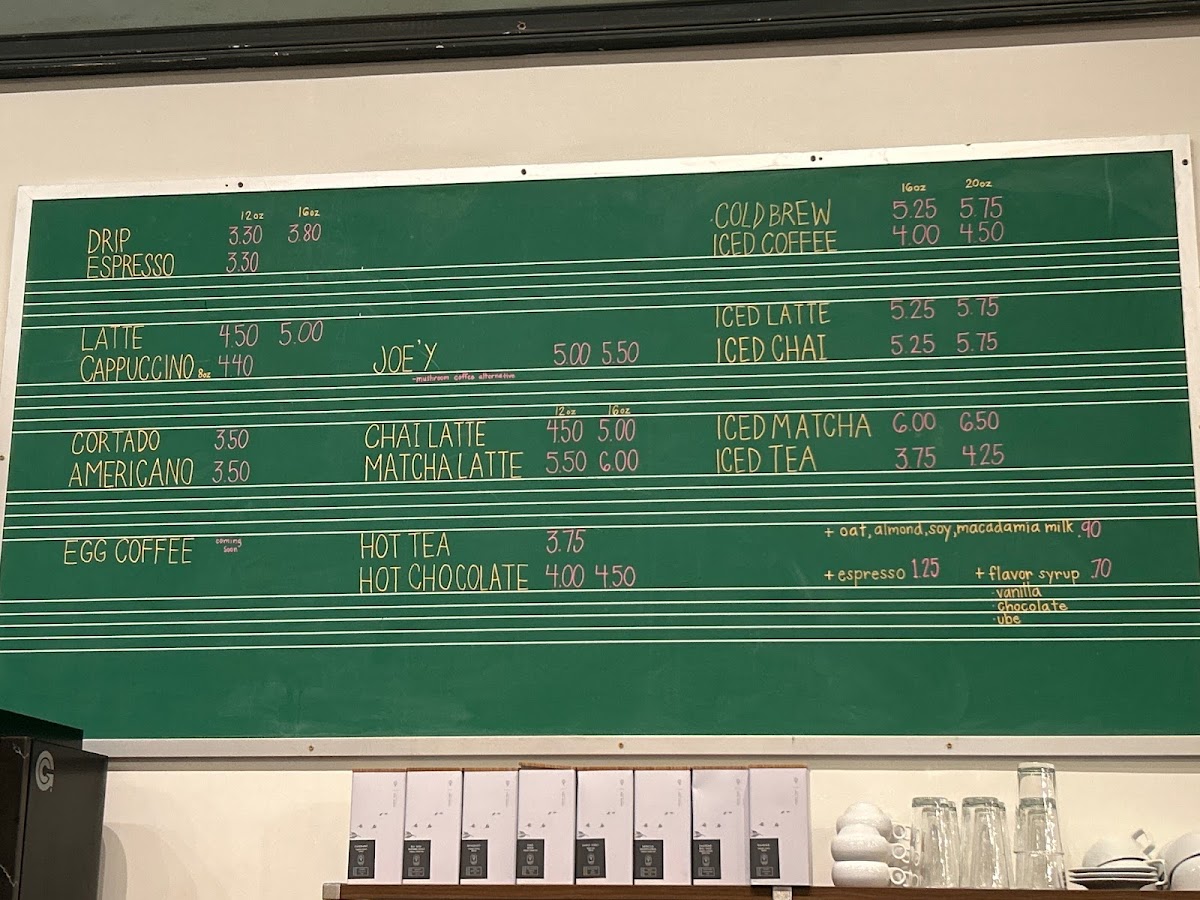 12oz 16oz
DRIP 3.30 3.80
ESPRESSO 3.30
LATTE 4.50 5.00
CAPPUCCINO 8oz 4.40
CORTADO 3.50
AMERICANO 3.50
EGG COFFEE coming soon
JOE'Y 5.00 5.50
-mushroom coffee alternative
12oz 16oz
CHAI LATTE 4.50 5.00
MATCHA LATTE 5.50 6.00
HOT TEA 3.75
HOT CHOCOLATE 4.00 4.50
16oz 20oz
COLD BREW 5.25 5.75
ICED COFFEE 4.00 4.50
ICED LATTE 5.25 5.75
ICED CHAI 5.25 5.75
ICED MATCHA 6.00 6.50
ICED TEA 3.75 4.25
+ oat, almond, soy, macadamia milk .90
+ espresso 1.25 + flavor syrup .70
·vanilla
·chocolate
·ube